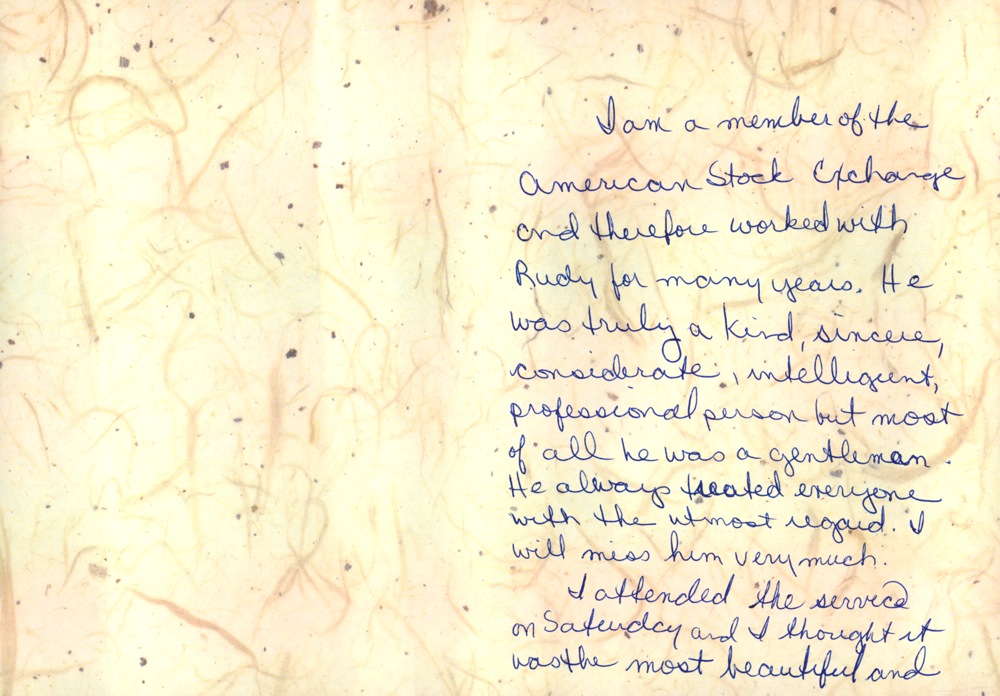 I am a member of the
American Stock Exchange
and therefore worked with
Rudy for many years. He
was truly a kind, sincere,
considerate, intelligent,
professional person but most
of all he was a gentleman.
He always treated everyone
with the utmost regard. I
will miss him very much.
I attended the service
on Saturday and I thought it
was the most beautiful and